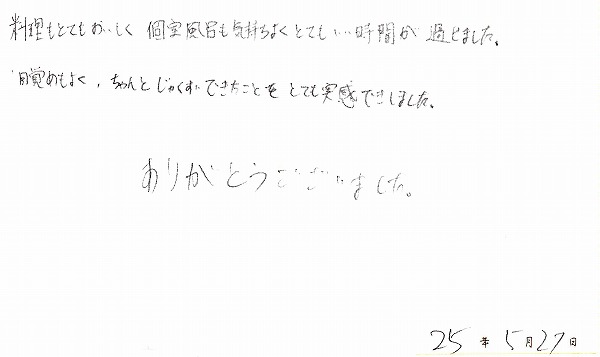 料理もとてもおいしく 個室風呂も気持ちよくとてもいい時間が過ごせました。
目覚めもよく、ちゃんとじゅくすいできたことをとても実感できました。
ありがとうございました。
25年5月27日